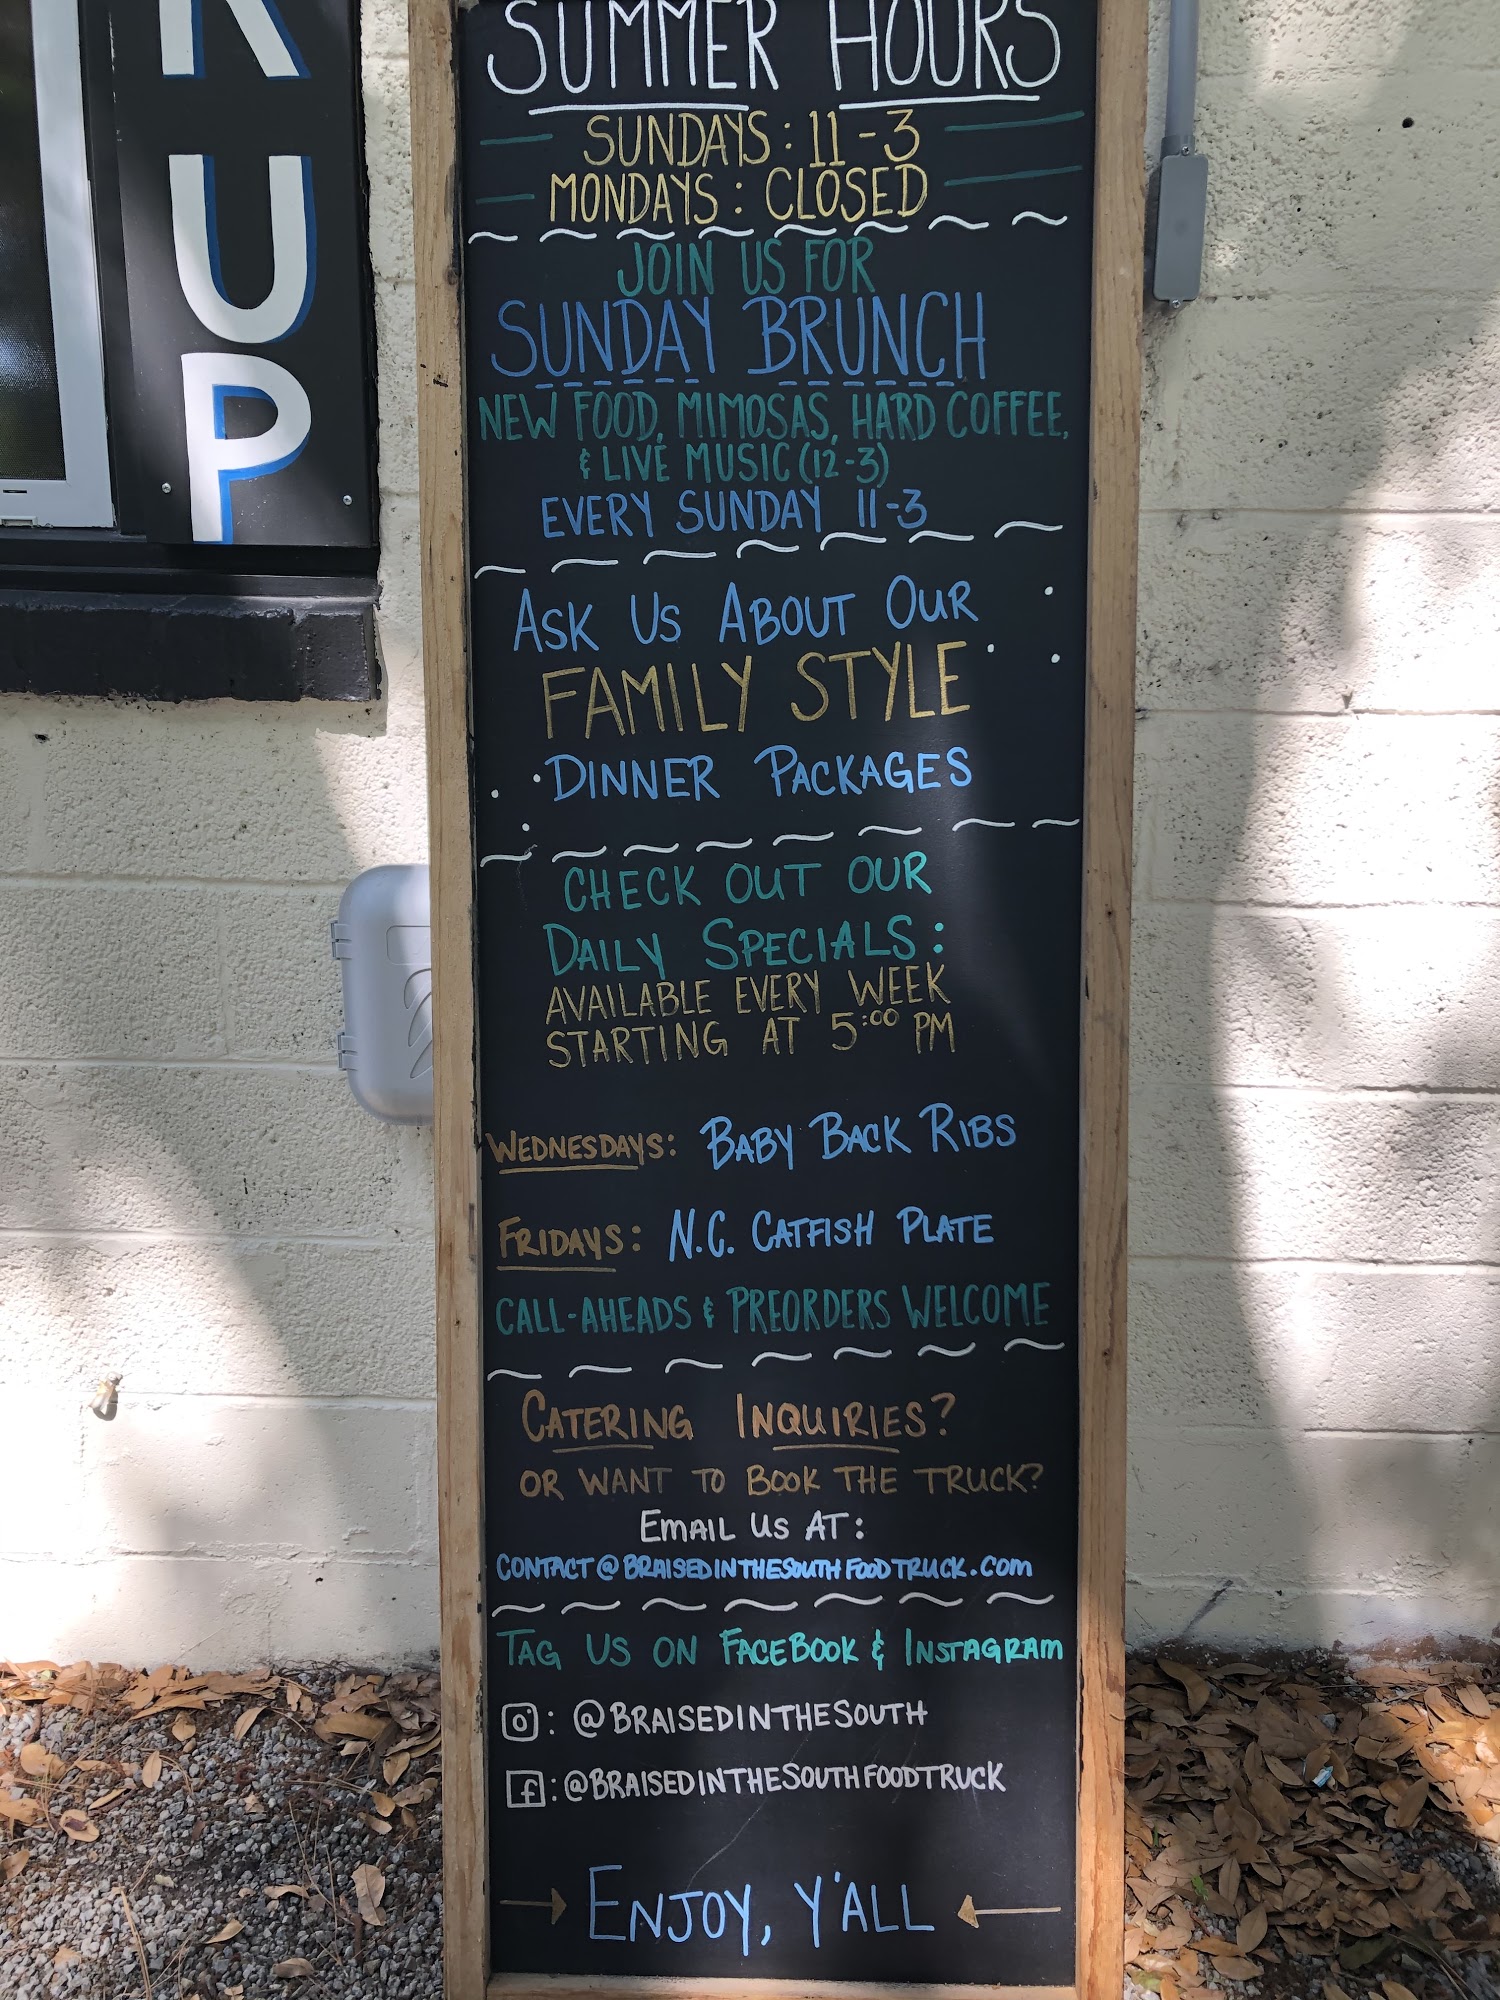 RUP
SUMMER HOURS
SUNDAYS: 11-3
MONDAYS: CLOSED
JOIN US FOR
SUNDAY BRUNCH
NEW FOOD, MIMOSAS, HARD COFFEE,
& LIVE MUSIC (12-3)
EVERY SUNDAY 11-3
ASK US ABOUT OUR
FAMILY STYLE
DINNER PACKAGES
CHECK OUT OUR
DAILY SPECIALS:
AVAILABLE EVERY WEEK
STARTING AT 5:00 PM
WEDNESDAYS: BABY BACK RIBS
FRIDAYS: N.C. CATFISH PLATE
CALL-AHEADS & PREORDERS WELCOME
CATERING INQUIRIES?
OR WANT TO BOOK THE TRUCK?
EMAIL US AT:
CONTACT@BRAISEDINTHESOUTHFOODTRUCK.COM
TAG US ON FACEBOOK & INSTAGRAM
: @BRAISEDINTHESOUTH
f: @BRAISEDINTHESOUTHFOODTRUCK
ENJOY, Y'ALL